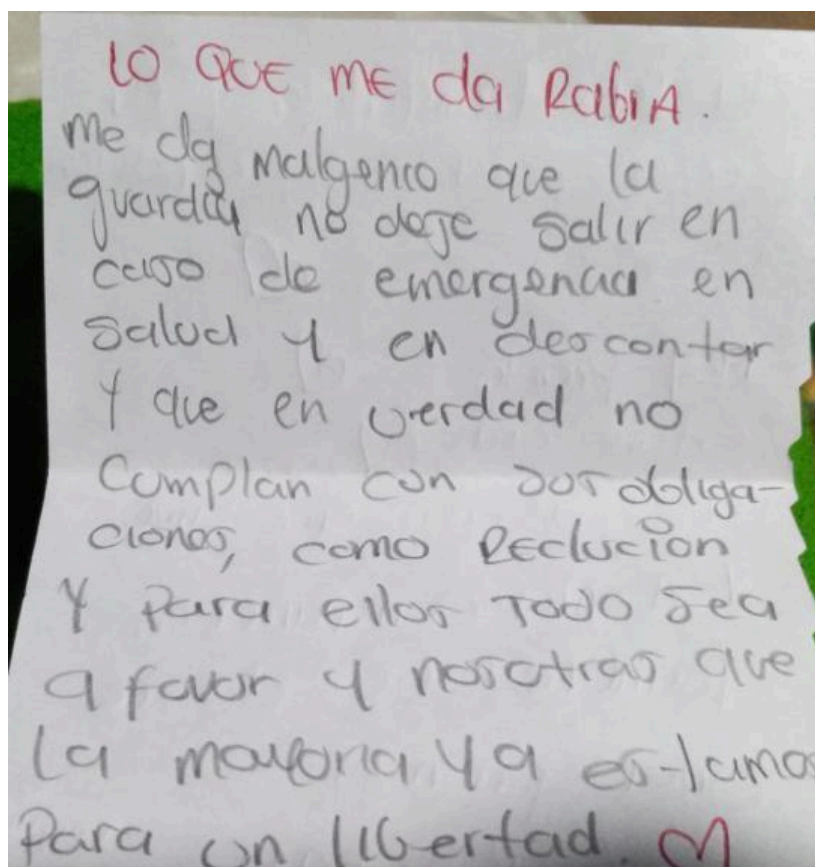 LO QUE ME da RabiA.
Me da malgenio que la
guardia no deje salir en
caso de emergencia en
Salud y en descontar
Y que en verdad no
Cumplan con sus obliga-
ciones, como Reclucion
Y Para ellos TODO Sea
a favor y nosotras que
La mayoria ya estamos
Para un libertad